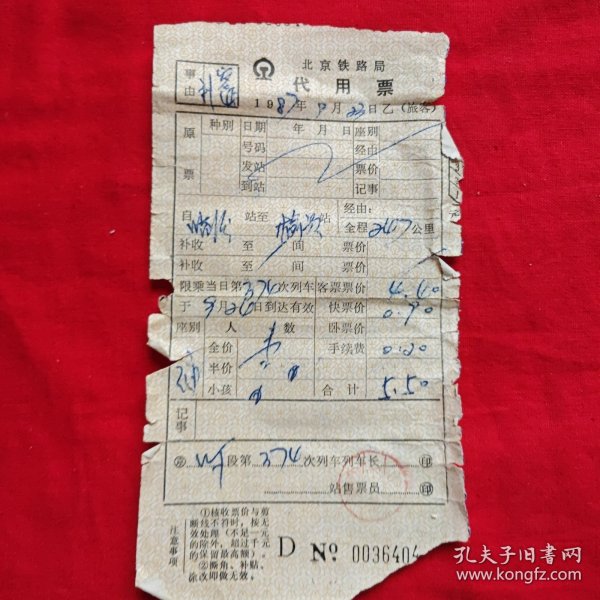 北京铁路局
代用票
事由
1987年9月23日乙(旅客)
原票
种别 日期 年 月 日 座别
号码 经由
发站 票价
到站 记事
自 站至 站 经由:
全程247公里
补收 至 间 票价
补收 至 间 票价
限乘当日第376次列车 客票票价 4.40
于9月26日到达有效 快票价 0.90
座别 人数 卧票价
全价 手续费 0.20
半价
小孩 合计 5.50
记事
段第374次列车列车长 印
站售票员 印
注意事项
①核收票价与剪断线不符时,按无效处理(不足一元的除外,超过千元的保留最高额)。
②撕角、补贴、涂改即做无效。
D No 0036404
孔夫子旧书网
www.kongfz.com